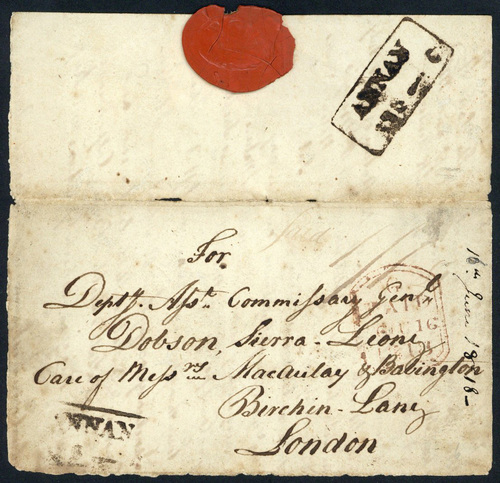 ANNAN
For
Depty. Asst. Commissary Genl.
Dobson, Sierra-Leone
Care of Messrs Macaulay & Babington
Birchin-Lane
London
16th June 1818-
PAID
16
ANNAN